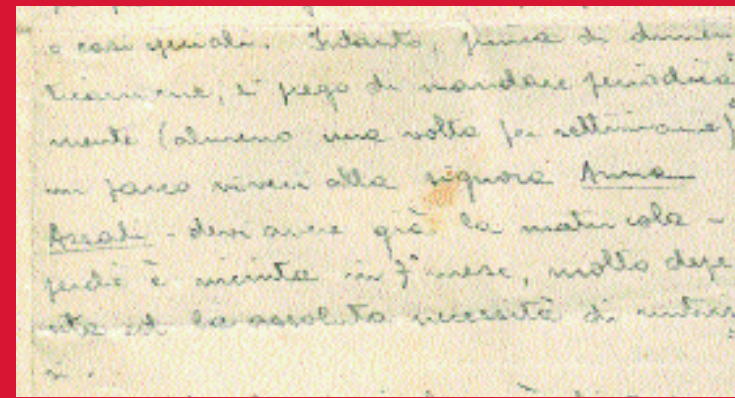 o casi speciali. Intanto, prima di dimen
ticarmene, ti prego di mandare periodica
mente (almeno una volta per settimana)
un pacco viveri alla signora Anna
Assali - devi avere già la matricola -
perché è incinta in 7° mese, molto depe
rita ed ha assoluta necessità di nutrir
si.